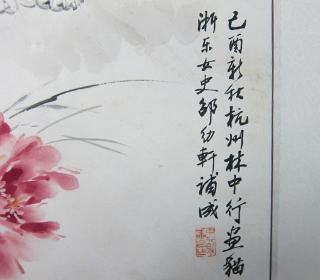 己酉新秋杭州林中行画貓
浙东女史邵幼軒補成